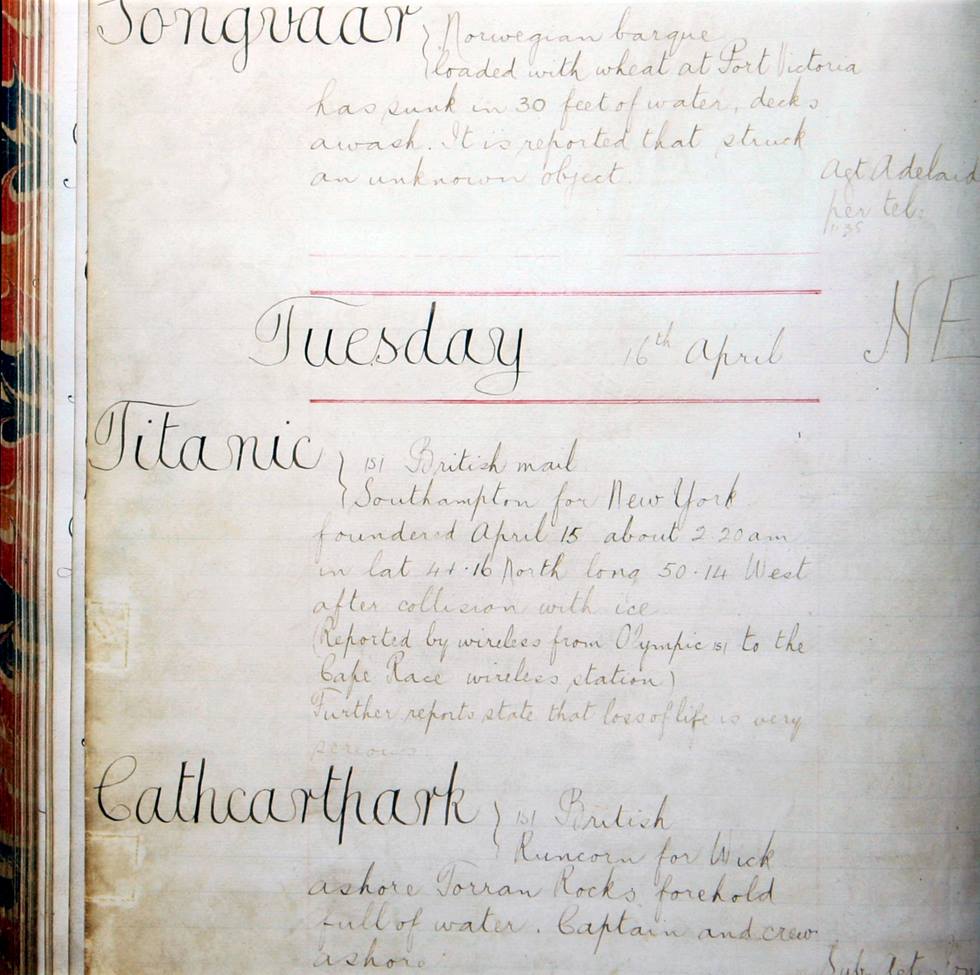 Songvaar } Norwegian barque
loaded with wheat at Port Victoria
has sunk in 30 feet of water, decks
awash. It is reported that struck
an unknown object.
Agt Adelaid
per tel:
1.35
Tuesday 16th April
NE
Titanic } (s) British mail
Southampton for New York
foundered April 15 about 2.20 am
in lat 41.16 North long 50.14 West
after collision with ice
(Reported by wireless from Olympic (s) to the
Cape Race wireless station)
Further reports state that loss of life is very
serious.
Cathcartpark } (s) British
Runcorn for Wick
ashore Torran Rocks, forehold
full of water. Captain and crew
ashore